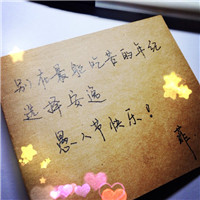 别在最能吃苦的年纪
选择安逸
愚人节快乐!
菲